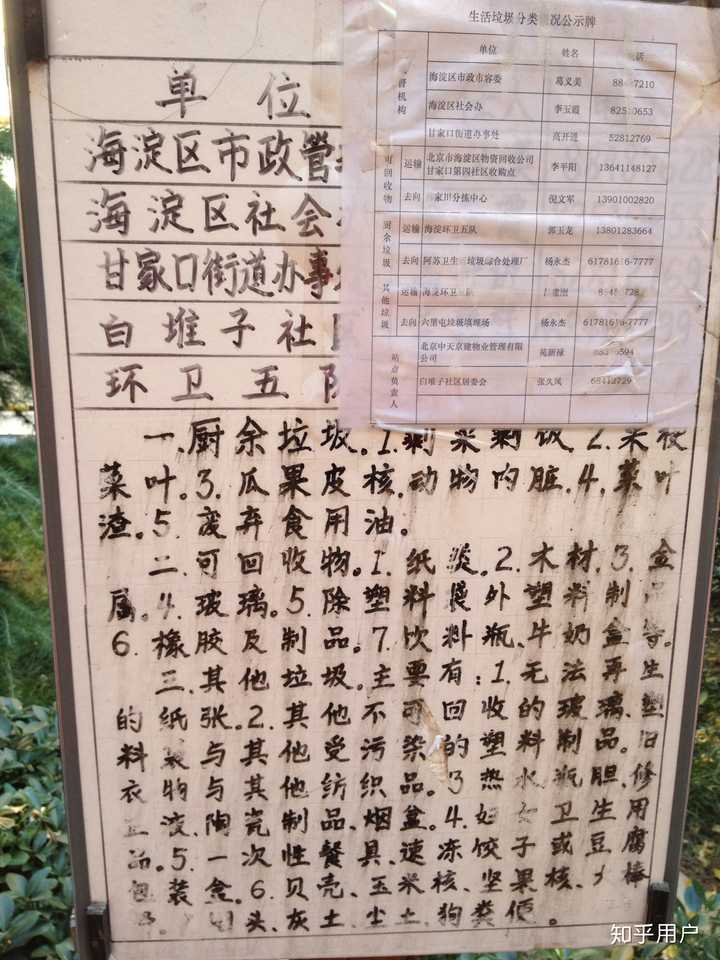 生活垃圾分类 况公示牌
单位 姓名
督机构
海淀区市政市容委 葛义美 7210
海淀区社会办 李玉霞 0653
甘家口街道办事处 高开进 52812769
可回收物
运输 北京市海淀区物资回收公司甘家口第四社区收购点 李平阳 13641148127
去向 家川分拣中心 倪文军 13901002820
厨余垃圾
运输 海淀环卫五队 郭玉龙 13801283664
去向 阿苏卫生 垃圾综合处理厂 杨永杰 -7777
其他垃圾
运输 海淀环卫 队
去向 六里屯垃圾填埋场 杨永杰 -7777
站点负责人
北京中天京建物业管理有限公司 苑新禄
白堆子社区居委会 张久凤 68412729
单位
海淀区市政管
海淀区社会
甘家口街道办事
白堆子社
环卫五队
一、厨余垃圾。1.剩菜剩饭。2.菜梗
菜叶。3.瓜果皮核.动物内脏.4.菜叶
渣。5.废弃食用油。
二.可回收物。1.纸类。2.木材.3.金
属。4.玻璃。5.除塑料袋外塑料制品
6.橡胶及制品。7.饮料瓶、牛奶盒等。
三.其他垃圾.主要有:1.无法再生
的纸张。2.其他不可回收的玻璃、塑
料袋与其他受污染的塑料制品。旧
衣物与其他纺织品。3热水瓶胆.修
正液、陶瓷制品、烟盆。4.妇女卫生用
品。5.一次性餐具、速冻饺子或豆腐
包装盒。6.贝壳、玉米核、坚果核、 棒
头、灰土、尘土、狗粪便。
知乎用户